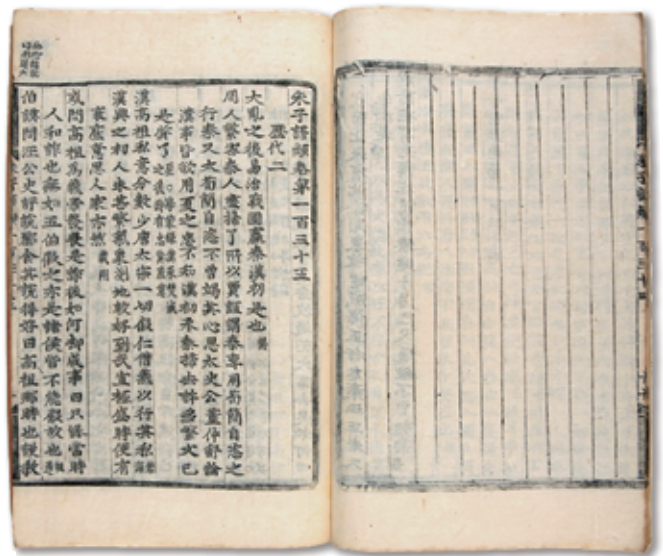 朱子語類卷第一百三十五
歷代二
大亂之後易治戰國嬴秦漢初是也
周人繁密秦人盡掃了所以賈誼謂秦專用苟簡自恣之
行秦又太苟簡自恣不曾竭其心思太史公董仲舒論
漢事皆欲用夏之忠不知漢初承秦掃去許多繁文已
是質了
漢高祖私意分數少唐太宗一切假仁借義以行其私
漢興之初人未甚繁氣象剗地較好到武宣極盛時便有
衰底意思人家亦然 義剛
或問高祖爲義帝發喪是詐後如何却成事曰只緣當時
人和詐也無如五伯假之亦是諸侯皆不能假故也
伯謨問汪公史評說酈食其說得好曰高祖那時也謾教